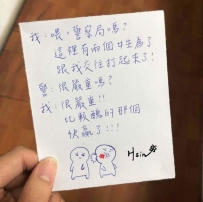 我:喂,警察局嗎?
這裡有兩個女生為了
跟我交往打起來了!
警:很嚴重嗎?
我:很嚴重!!
比較醜的那個
快贏了!!!
Hsin